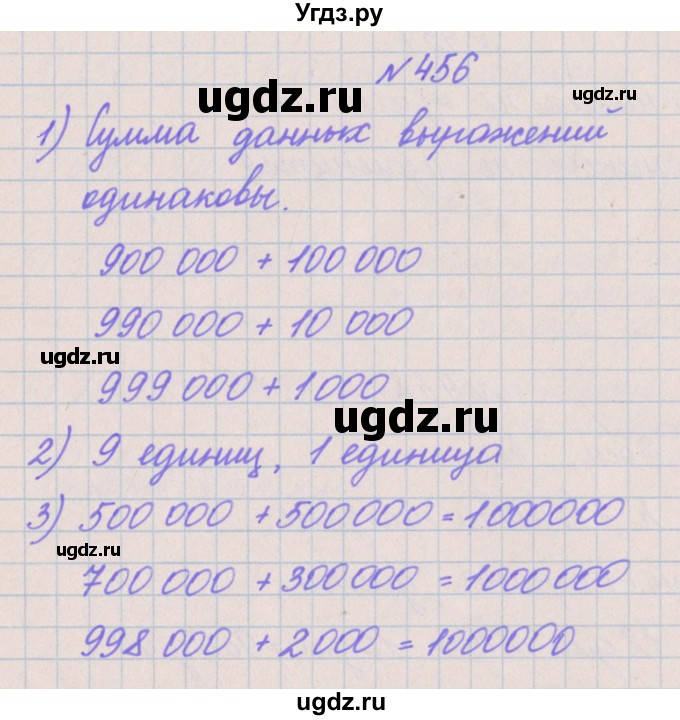 Угдз.ру
№456
ugdz.ru ugdz.ru
1) Сумма данных выражений
одинаковы.
900 000 + 100 000
990 000 + 10 000
ugdz.ru
999 000 + 1000
ugdz.ru
2) 9 единиц, 1 единица
3) 500 000 + 500 000 = 1 000000
ugdz.ru
700 000 + 300 000 = 1000 000
998 000 + 2 000 = 1000000
ugdz.ru